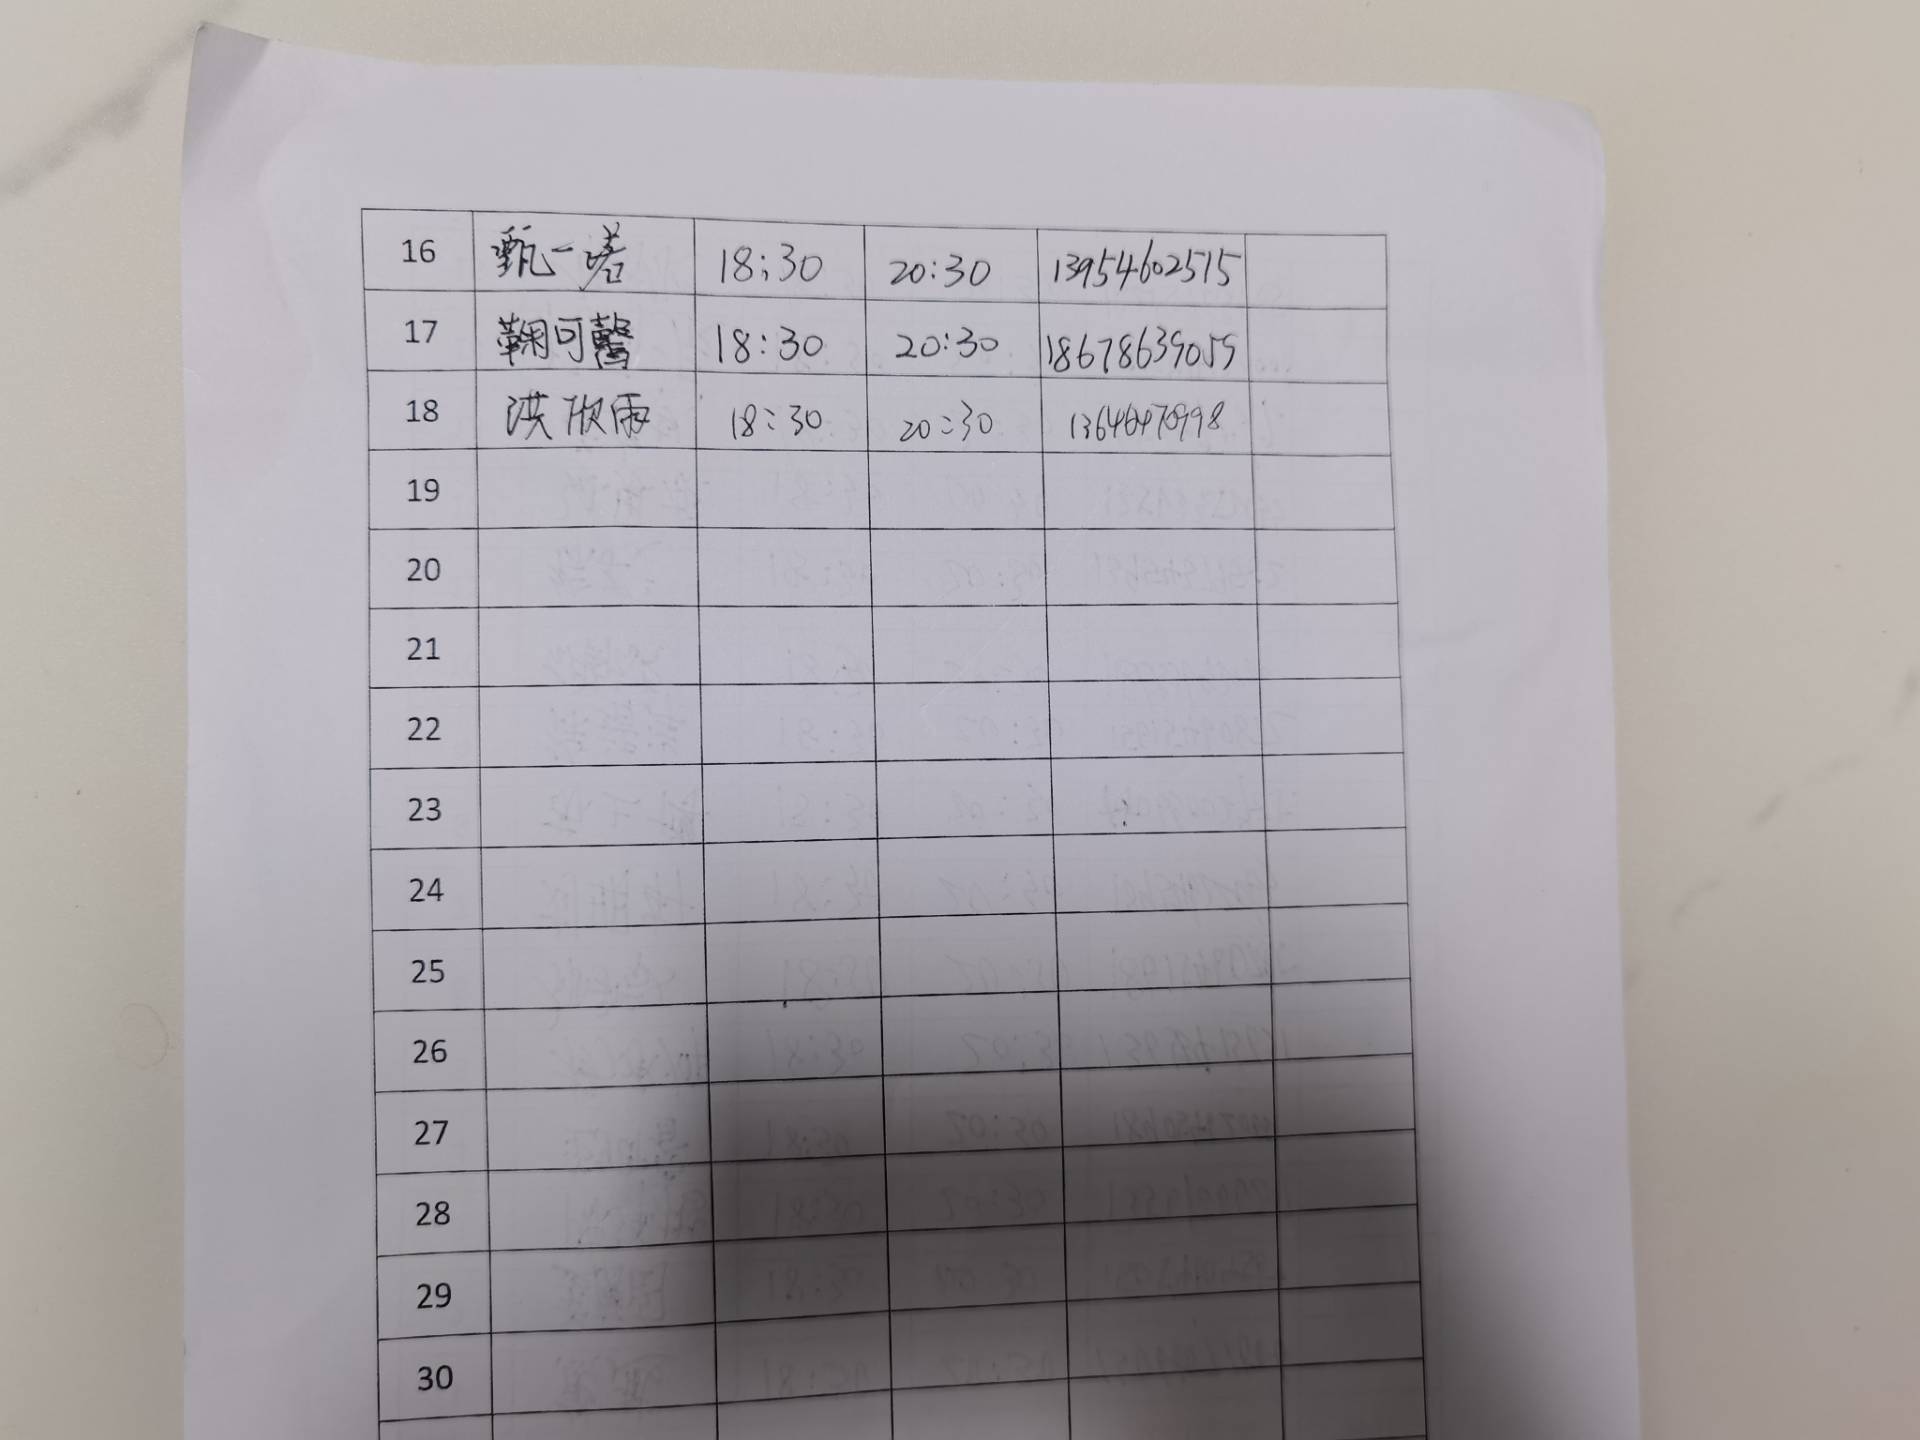 16 甄一喏 18:30 20:30 13954602515
17 鞠可馨 18:30 20:30 18678639059
18 洪欣雨 18:30 20:30 13646470998
19
20
21
22
23
24
25
26
27
28
29
30